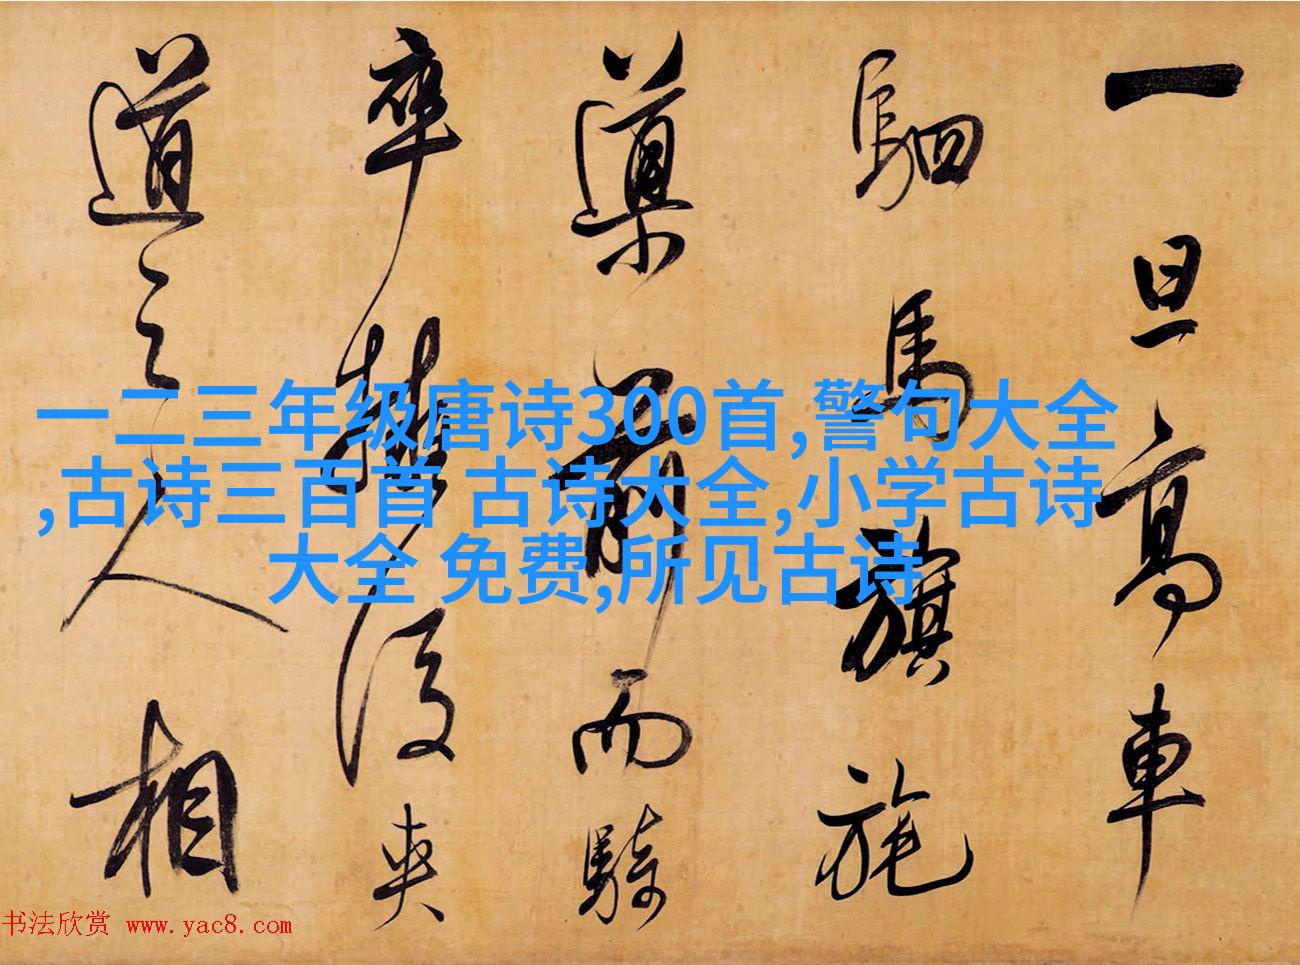 一旦高車
駟馬旗旄
導前而騎
卒擁後夾
道之人相
一二三年级唐诗300首,警句大全
,古诗三百首 古诗大全,小学古诗
大全 免费,所见古诗
书法欣赏 www.yac8.com